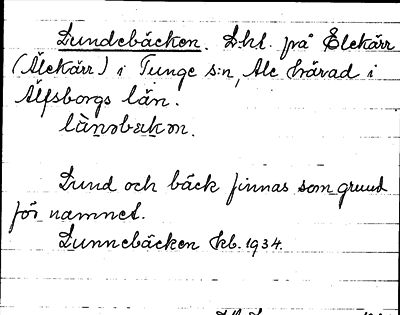 Lundebäcken. Lht. på Elekärr
(Älekärr) i Tunge s:n, Ale härad i
Älfsborgs län.
lànəbækən.
Lund och bäck finnas som grund
för namnet.
Lunnebäcken kb. 1934.